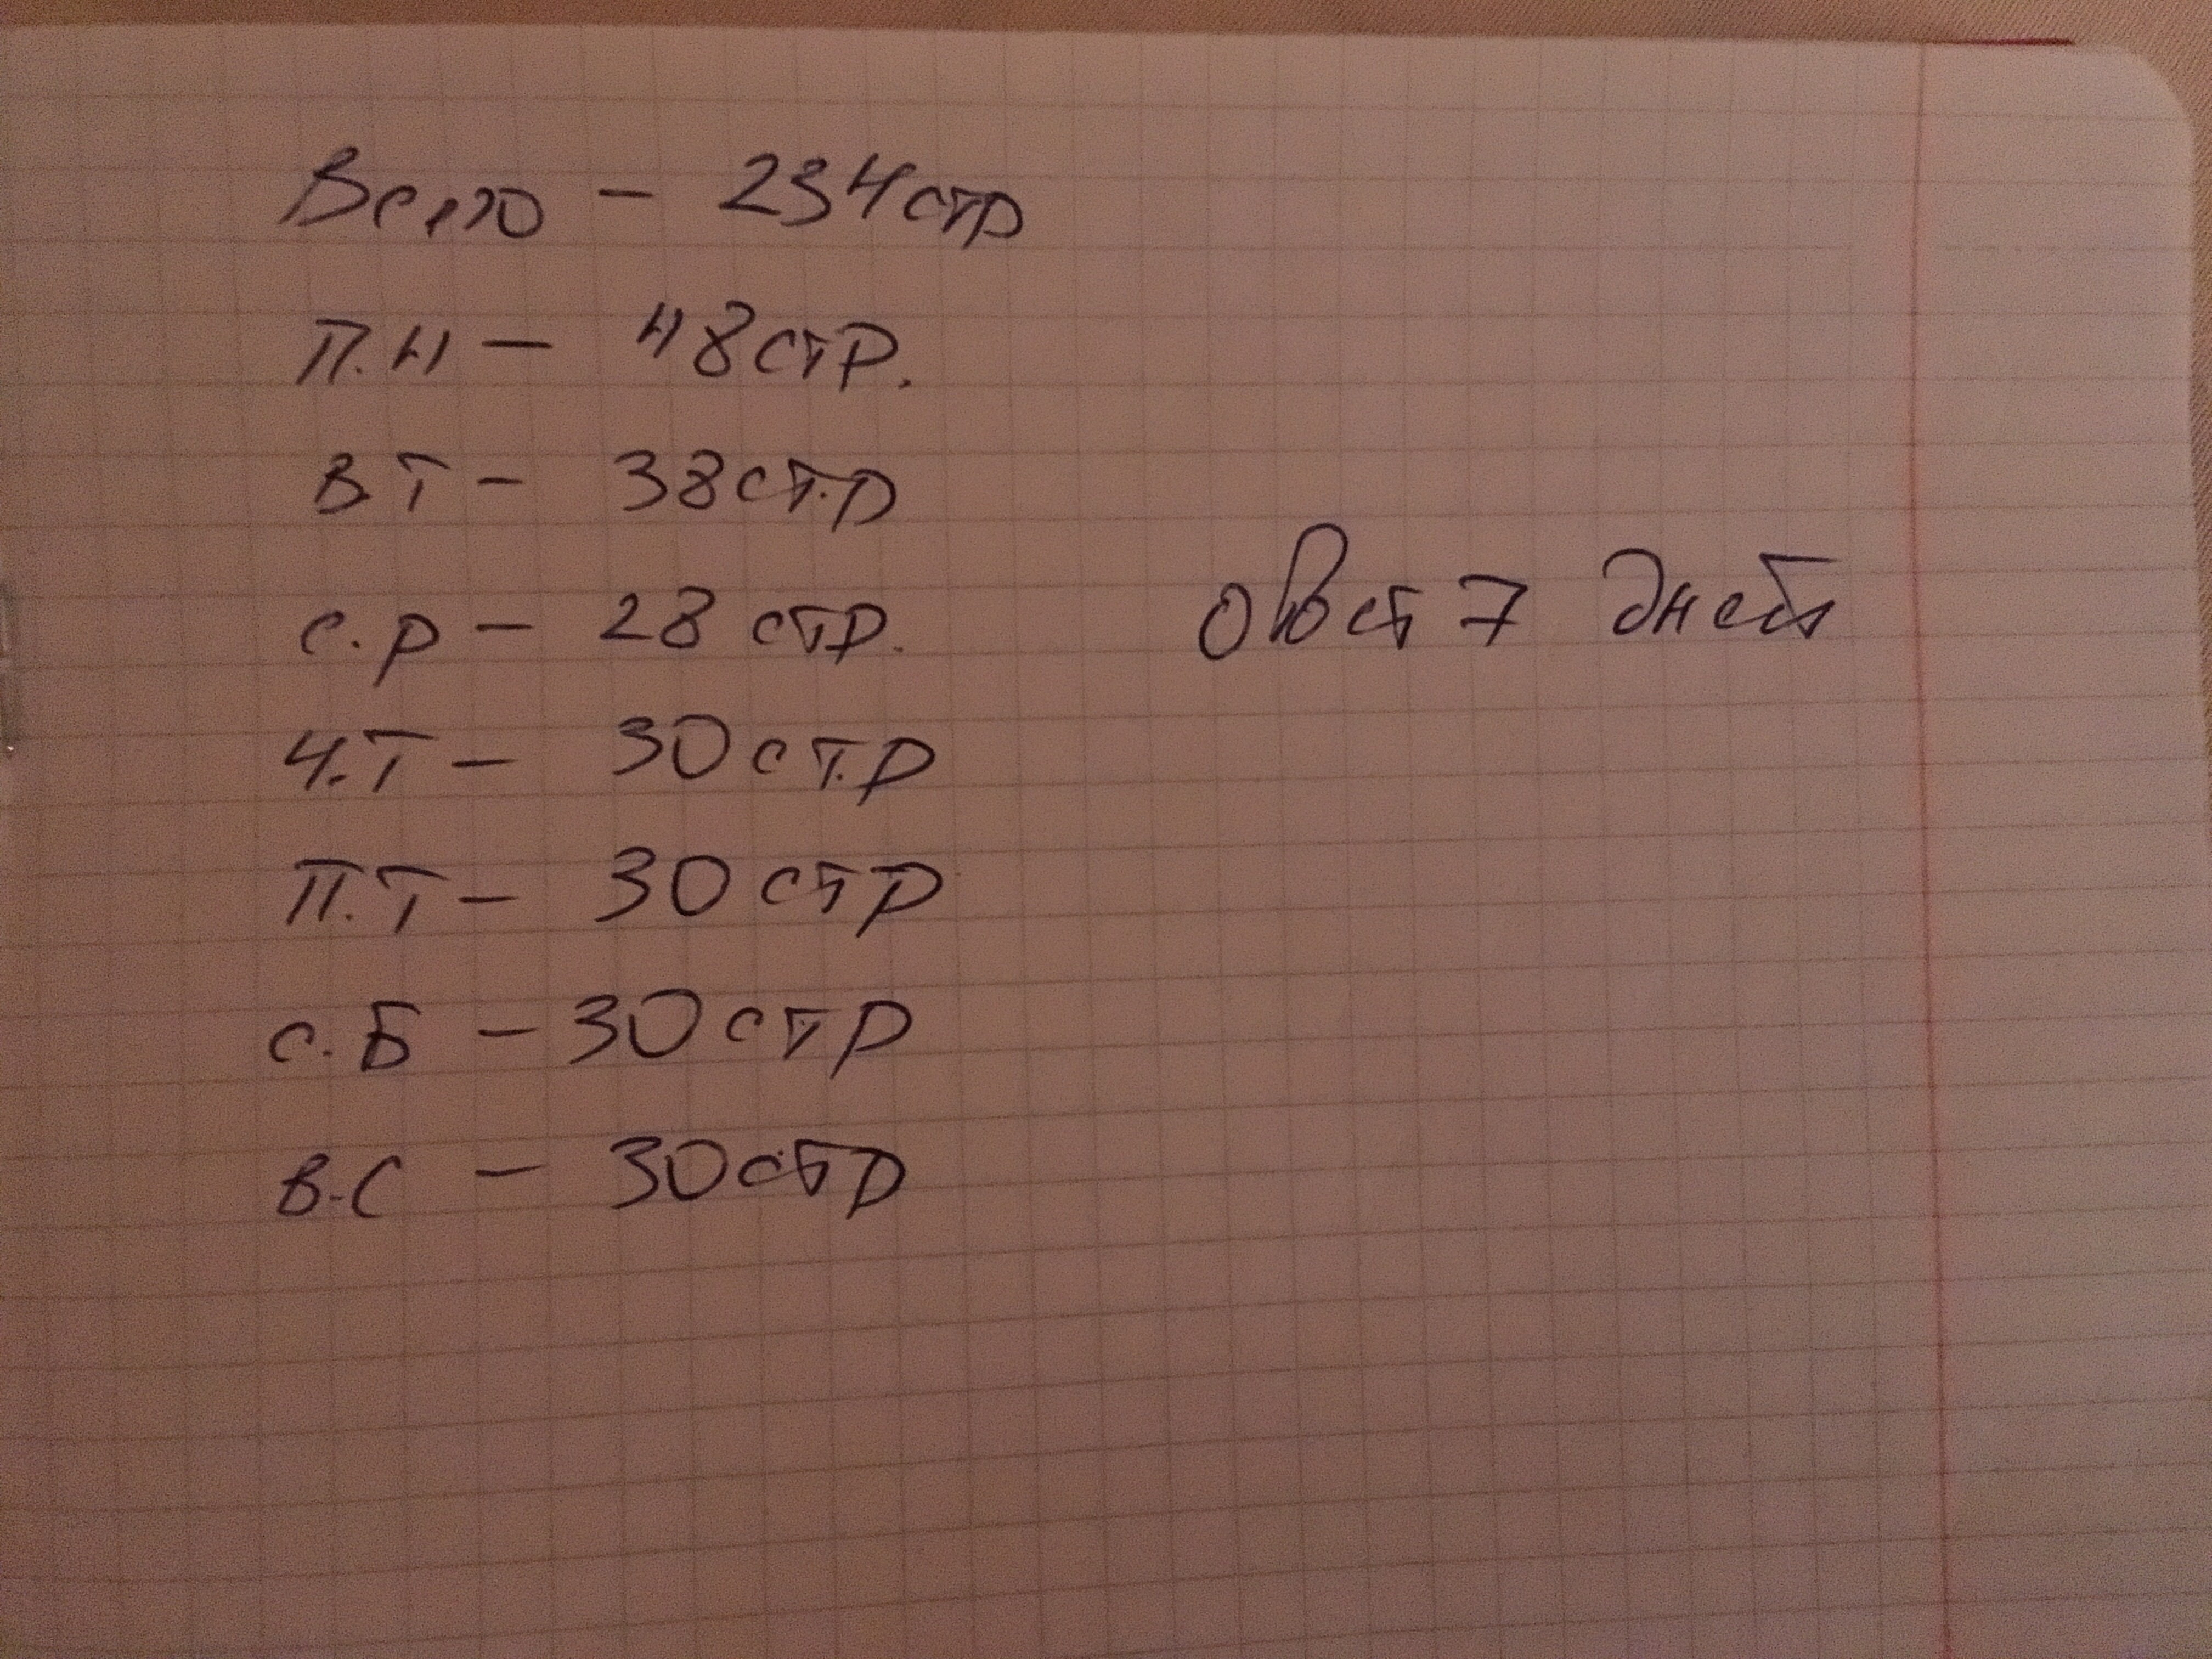 Всего - 234стр
П.Н - 48стр.
В.Т - 38ст.р
с.р - 28 стр.
Ч.Т - 30ст.р
П.Т - 30стр
с.Б - 30стр
В.С - 30стр
овет 7 дней